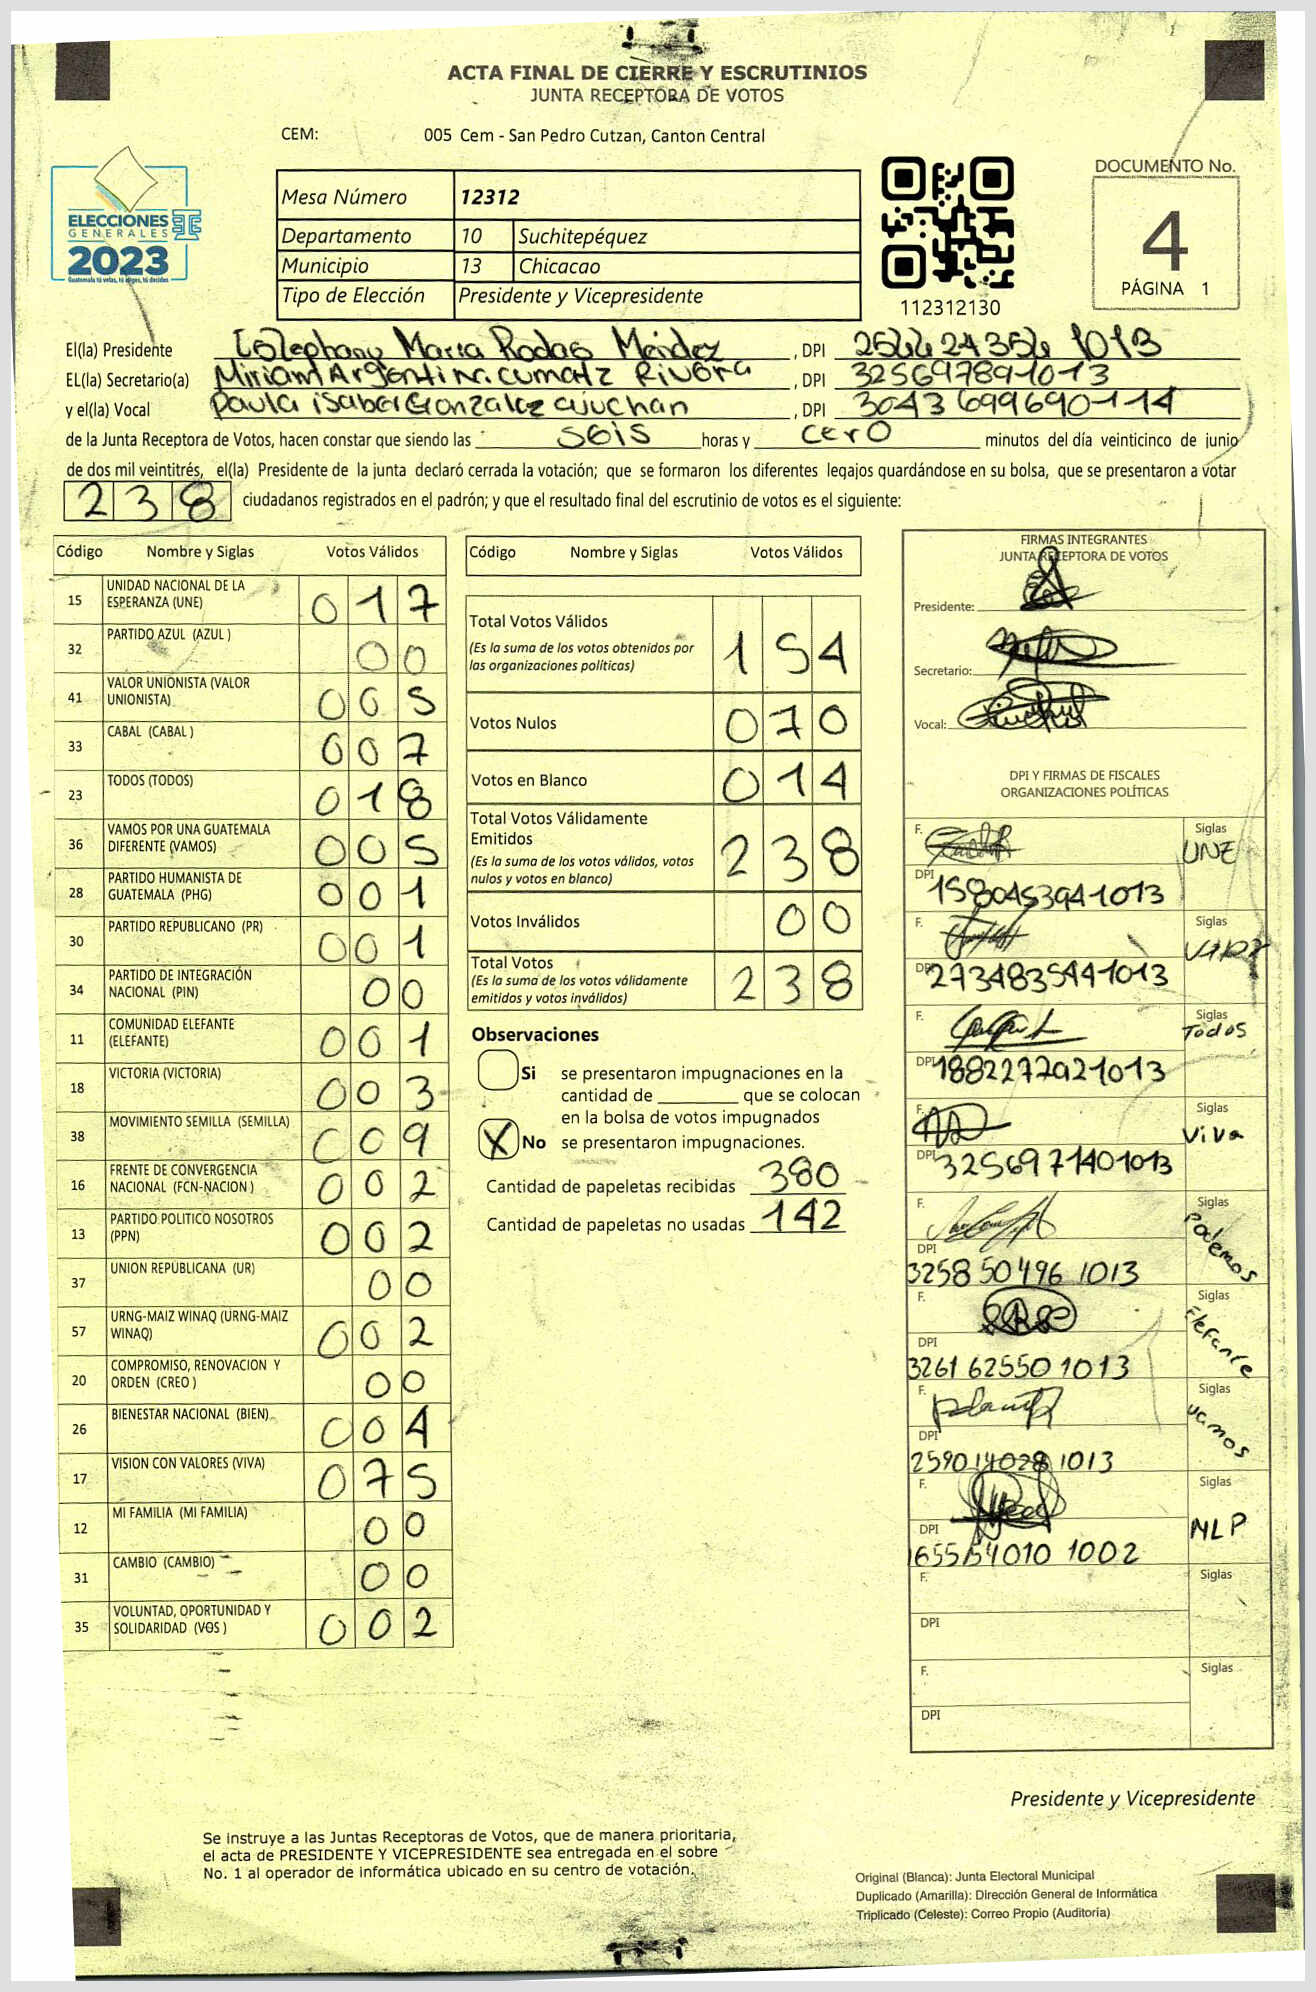 ACTA FINAL DE CIERRE Y ESCRUTINIOS
JUNTA RECEPTORA DE VOTOS
CEM: 005 Cem - San Pedro Cutzan, Canton Central
ELECCIONES
GENERALES
2023
Guatemala tú velas, tú eliges, tú decides
Mesa Número 12312
Departamento 10 Suchitepéquez
Municipio 13 Chicacao
Tipo de Elección Presidente y Vicepresidente
112312130
DOCUMENTO No.
4
PÁGINA 1
El(la) Presidente Maria Rodas Méndez, DPI 1013
EL(la) Secretario(a) Miriam Rivera, DPI 3256978941013
y el(la) Vocal Paula isabel Gonzalez, DPI 3043699690114
de la Junta Receptora de Votos, hacen constar que siendo las seis horas y cero minutos del día veinticinco de junio
de dos mil veintitrés, el(la) Presidente de la junta declaró cerrada la votación; que se formaron los diferentes legajos quardándose en su bolsa, que se presentaron a votar
238 ciudadanos registrados en el padrón; y que el resultado final del escrutinio de votos es el siguiente:
Código Nombre y Siglas Votos Válidos
15 UNIDAD NACIONAL DE LA ESPERANZA (UNE) 017
32 PARTIDO AZUL (AZUL ) 00
41 VALOR UNIONISTA (VALOR UNIONISTA) 005
33 CABAL (CABAL ) 007
23 TODOS (TODOS) 018
36 VAMOS POR UNA GUATEMALA DIFERENTE (VAMOS) 005
28 PARTIDO HUMANISTA DE GUATEMALA (PHG) 001
30 PARTIDO REPUBLICANO (PR) 001
34 PARTIDO DE INTEGRACIÓN NACIONAL (PIN) 00
11 COMUNIDAD ELEFANTE (ELEFANTE) 001
18 VICTORIA (VICTORIA) 003
38 MOVIMIENTO SEMILLA (SEMILLA) 009
16 FRENTE DE CONVERGENCIA NACIONAL (FCN-NACION ) 002
13 PARTIDO POLITICO NOSOTROS (PPN) 002
37 UNION REPUBLICANA (UR) 00
57 URNG-MAIZ WINAQ (URNG-MAIZ WINAQ) 002
20 COMPROMISO, RENOVACION Y ORDEN (CREO ) 00
26 BIENESTAR NACIONAL (BIEN) 004
17 VISION CON VALORES (VIVA) 075
12 MI FAMILIA (MI FAMILIA) 00
31 CAMBIO (CAMBIO) 00
35 VOLUNTAD, OPORTUNIDAD Y SOLIDARIDAD (VOS ) 002
Código Nombre y Siglas Votos Válidos
Total Votos Válidos 154
(Es la suma de los votos obtenidos por las organizaciones políticas)
Votos Nulos 070
Votos en Blanco 014
Total Votos Válidamente Emitidos 238
(Es la suma de los votos válidos, votos nulos y votos en blanco)
Votos Inválidos 00
Total Votos 238
(Es la suma de los votos válidamente emitidos y votos inválidos)
Observaciones
Si se presentaron impugnaciones en la
cantidad de ________ que se colocan
en la bolsa de votos impugnados
X No se presentaron impugnaciones.
Cantidad de papeletas recibidas 380
Cantidad de papeletas no usadas 142
FIRMAS INTEGRANTES
JUNTA RECEPTORA DE VOTOS
Presidente:
Secretario:
Vocal:
DPI Y FIRMAS DE FISCALES
ORGANIZACIONES POLÍTICAS
F. Siglas UNE
DPI 1580453941013
F. Siglas
DPI 2734835441013
F. Siglas Todos
DPI 1882277921013
F. Siglas Viva
DPI 3256971401013
F. Siglas Podemos
DPI 3258 50496 1013
F. Siglas Elefante
DPI 3261 62550 1013
F. Siglas Vamos
DPI 2590 14028 1013
F. Siglas MLP
DPI 1002
F. Siglas
DPI
F. Siglas
DPI
Presidente y Vicepresidente
Se instruye a las Juntas Receptoras de Votos, que de manera prioritaria,
el acta de PRESIDENTE Y VICEPRESIDENTE sea entregada en el sobre
No. 1 al operador de informática ubicado en su centro de votación.
Original (Blanca): Junta Electoral Municipal
Duplicado (Amarilla): Dirección General de Informática
Triplicado (Celeste): Correo Propio (Auditoría)